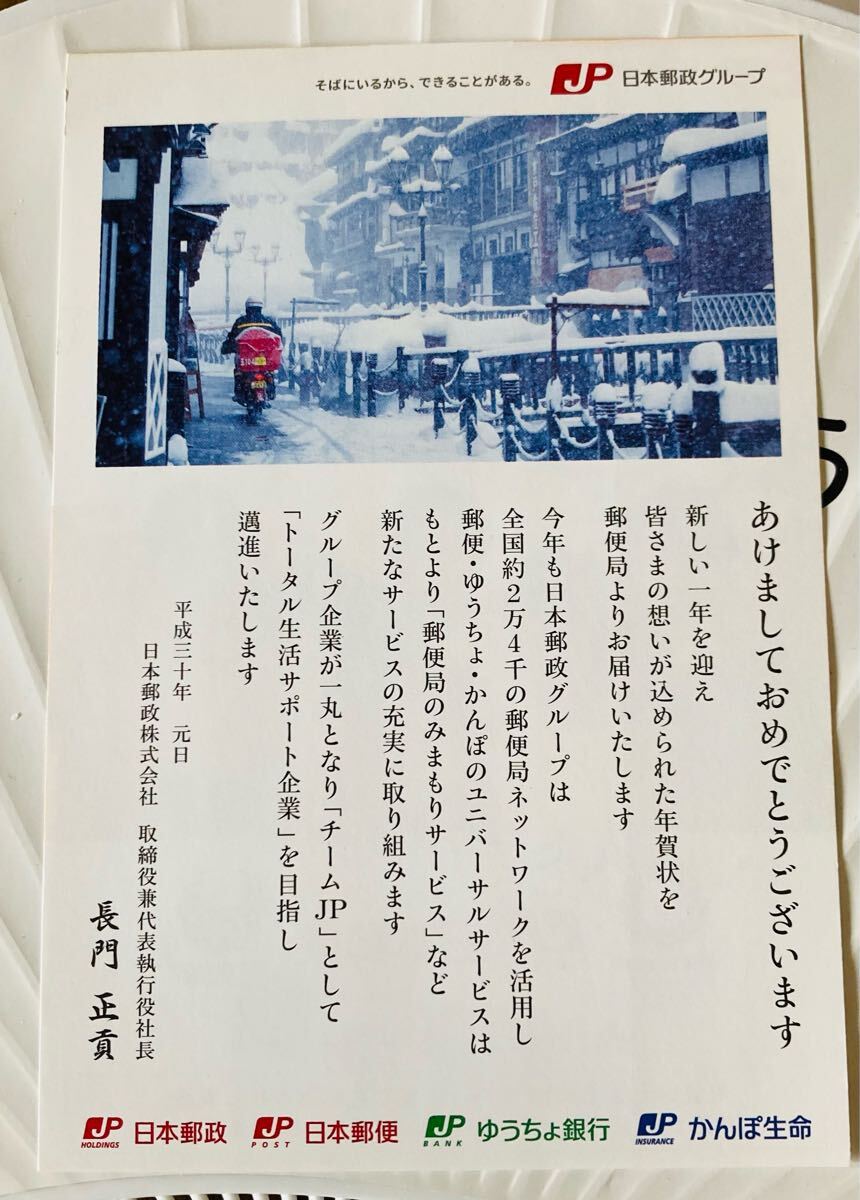 そばにいるから、できることがある。
JP 日本郵政グループ
あけましておめでとうございます
新しい一年を迎え
皆さまの想いが込められた年賀状を
郵便局よりお届けいたします
今年も日本郵政グループは
全国約2万4千の郵便局ネットワークを活用し
郵便・ゆうちょ・かんぽのユニバーサルサービスは
もとより「郵便局のみまもりサービス」など
新たなサービスの充実に取り組みます
グループ企業が一丸となり「チームJP」として
「トータル生活サポート企業」を目指し
邁進いたします
平成三十年 元日
日本郵政株式会社 取締役兼代表執行役社長
長門 正貢
JP HOLDINGS 日本郵政
JP POST 日本郵便
JP BANK ゆうちょ銀行
JP INSURANCE かんぽ生命